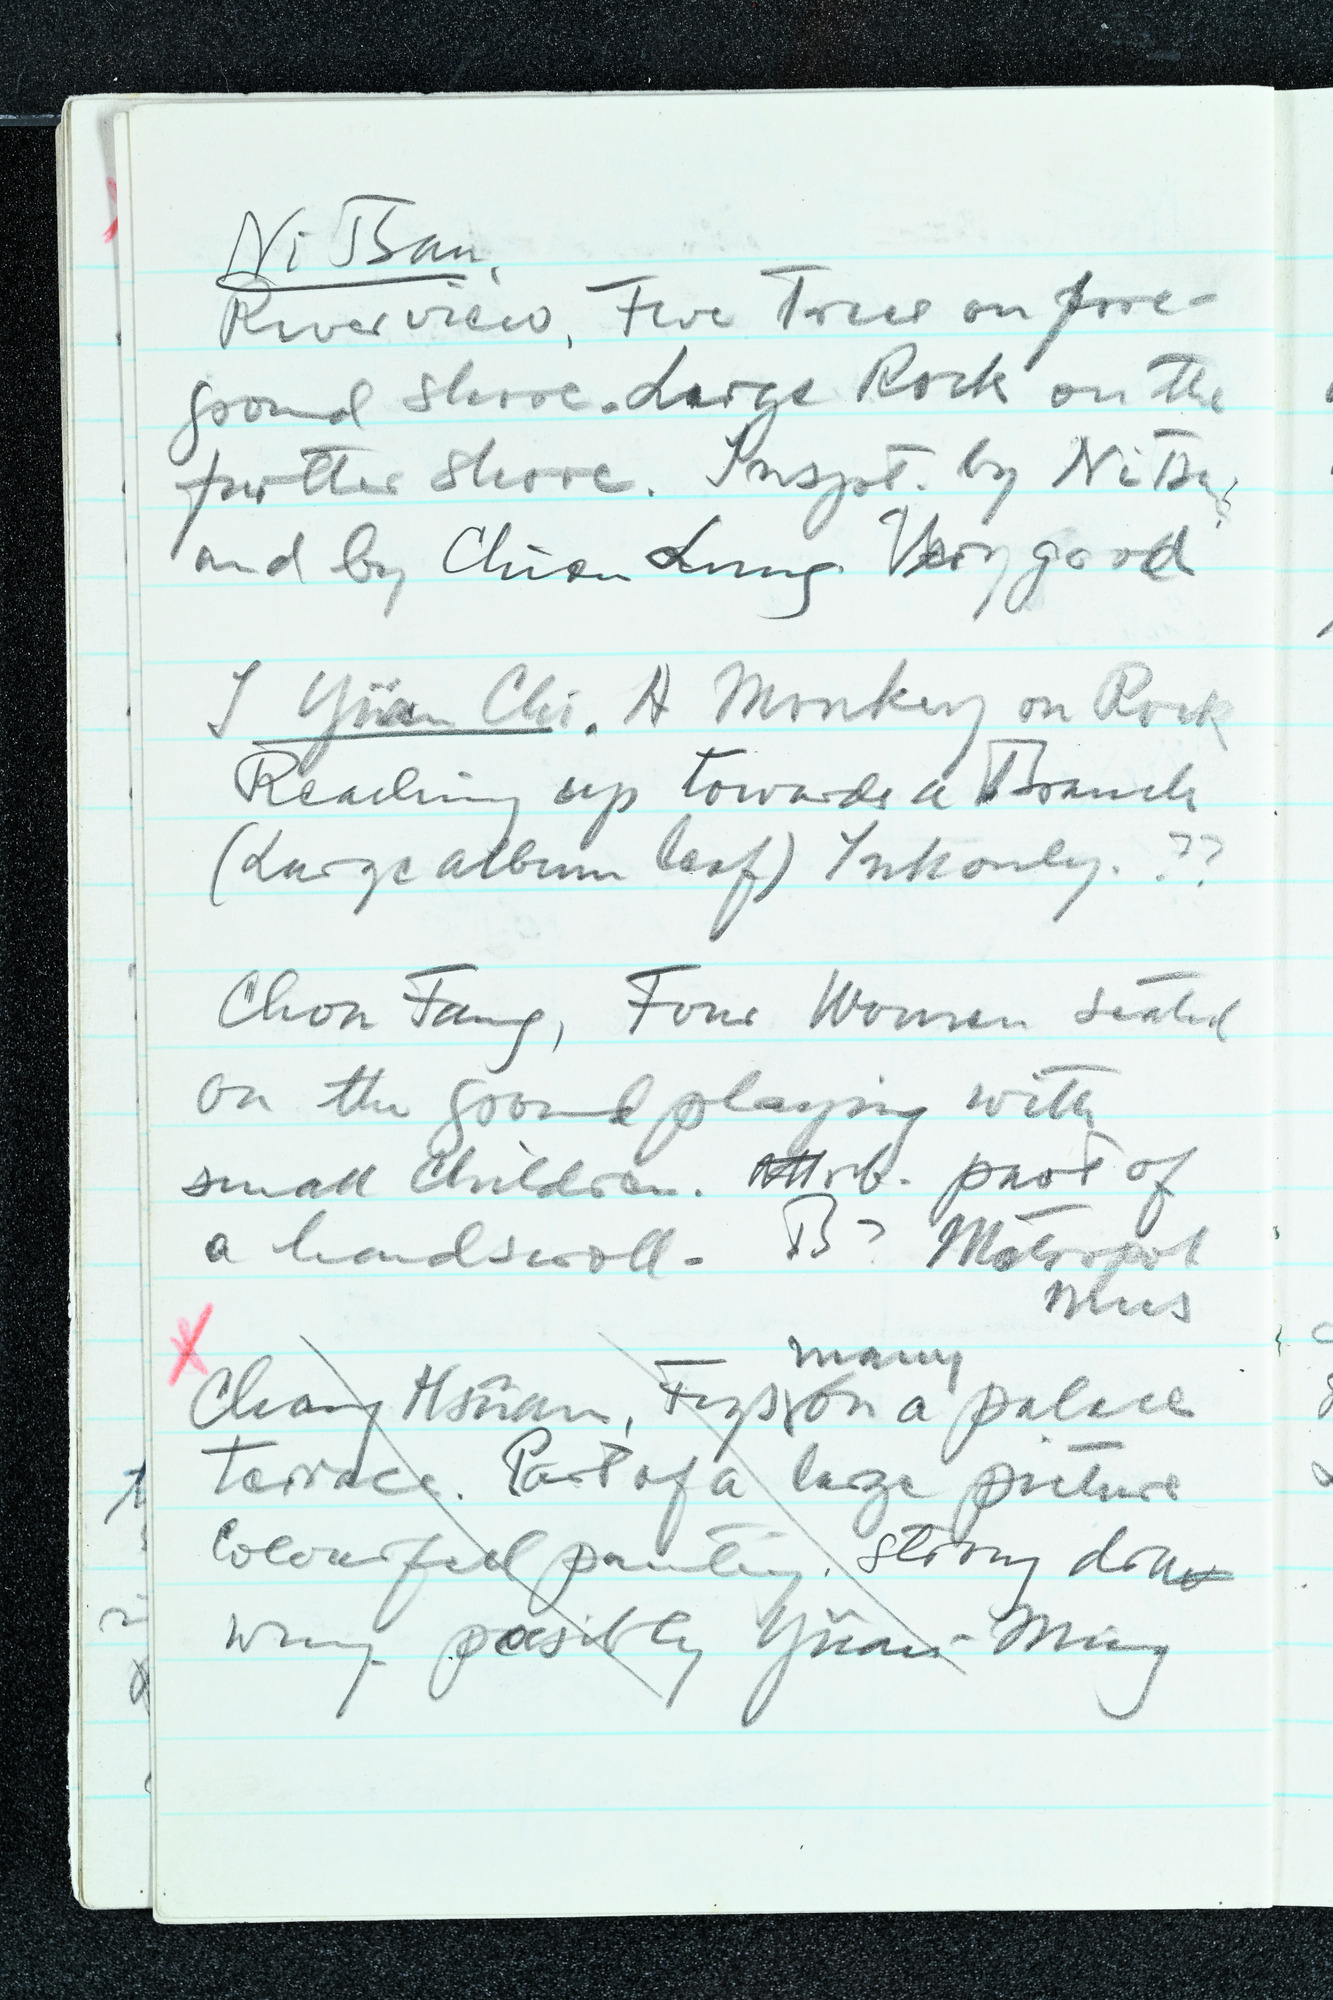 Ni Tsan,
River view, Five Trees on fore-
ground shore. Large Rock on the
further shore. Inspt. by Ni Tsan
and by Chien Lung. Very good
I Yüan Chi. A Monkey on Rock
Reaching up towards a Branch
(Large album leaf) Ink only. ??
Chou Fang, Four Women seated
on the ground playing with
small children. Attrib. part of
a handscroll. B? Metropol
Mus
X
many
Chang Hsüan, Figs on a palace
terrace. Part of a large picture
Colourful painting. strong draw
wing possibly Yüan - Ming